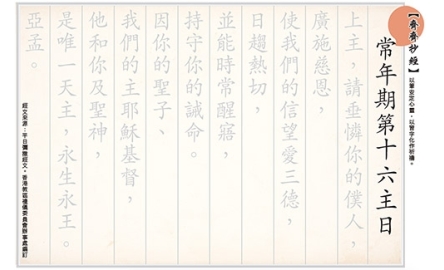 【齊齊抄經】
以筆安定心靈，以習字化作祈禱。
常年期第十六主日
上主，請垂憐你的僕人，
廣施慈恩，
使我們的信望愛三德，
日趨熱切，
並能時常醒寤，
持守你的誡命。
因你的聖子、
我們的主耶穌基督，
他和你及聖神，
是唯一天主，永生永王。
亞孟。
經文來源：平日彌撒經文。香港教區禮儀委員會辦事處編訂